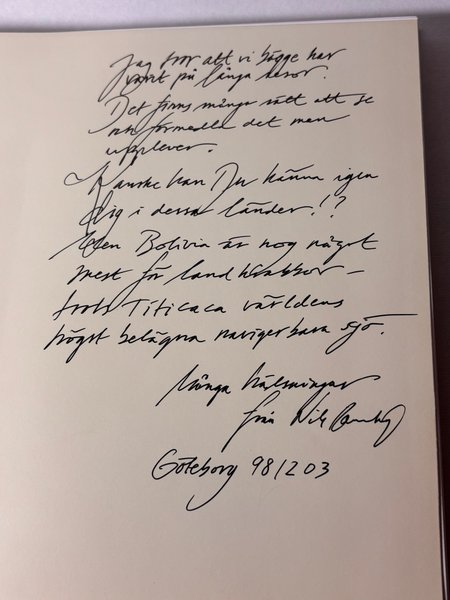 Jag tror att vi bägge har
varit på långa resor.
Det finns många sätt att se
och förmedla det man
upplever.
Kanske kan Du känna igen
dig i dessa länder!?
Men Bolivia är nog något
mest för landkrabbor –
trots Titicaca världens
högst belägna navigerbara sjö.
Många hälsningar
från Nils
Göteborg 981203